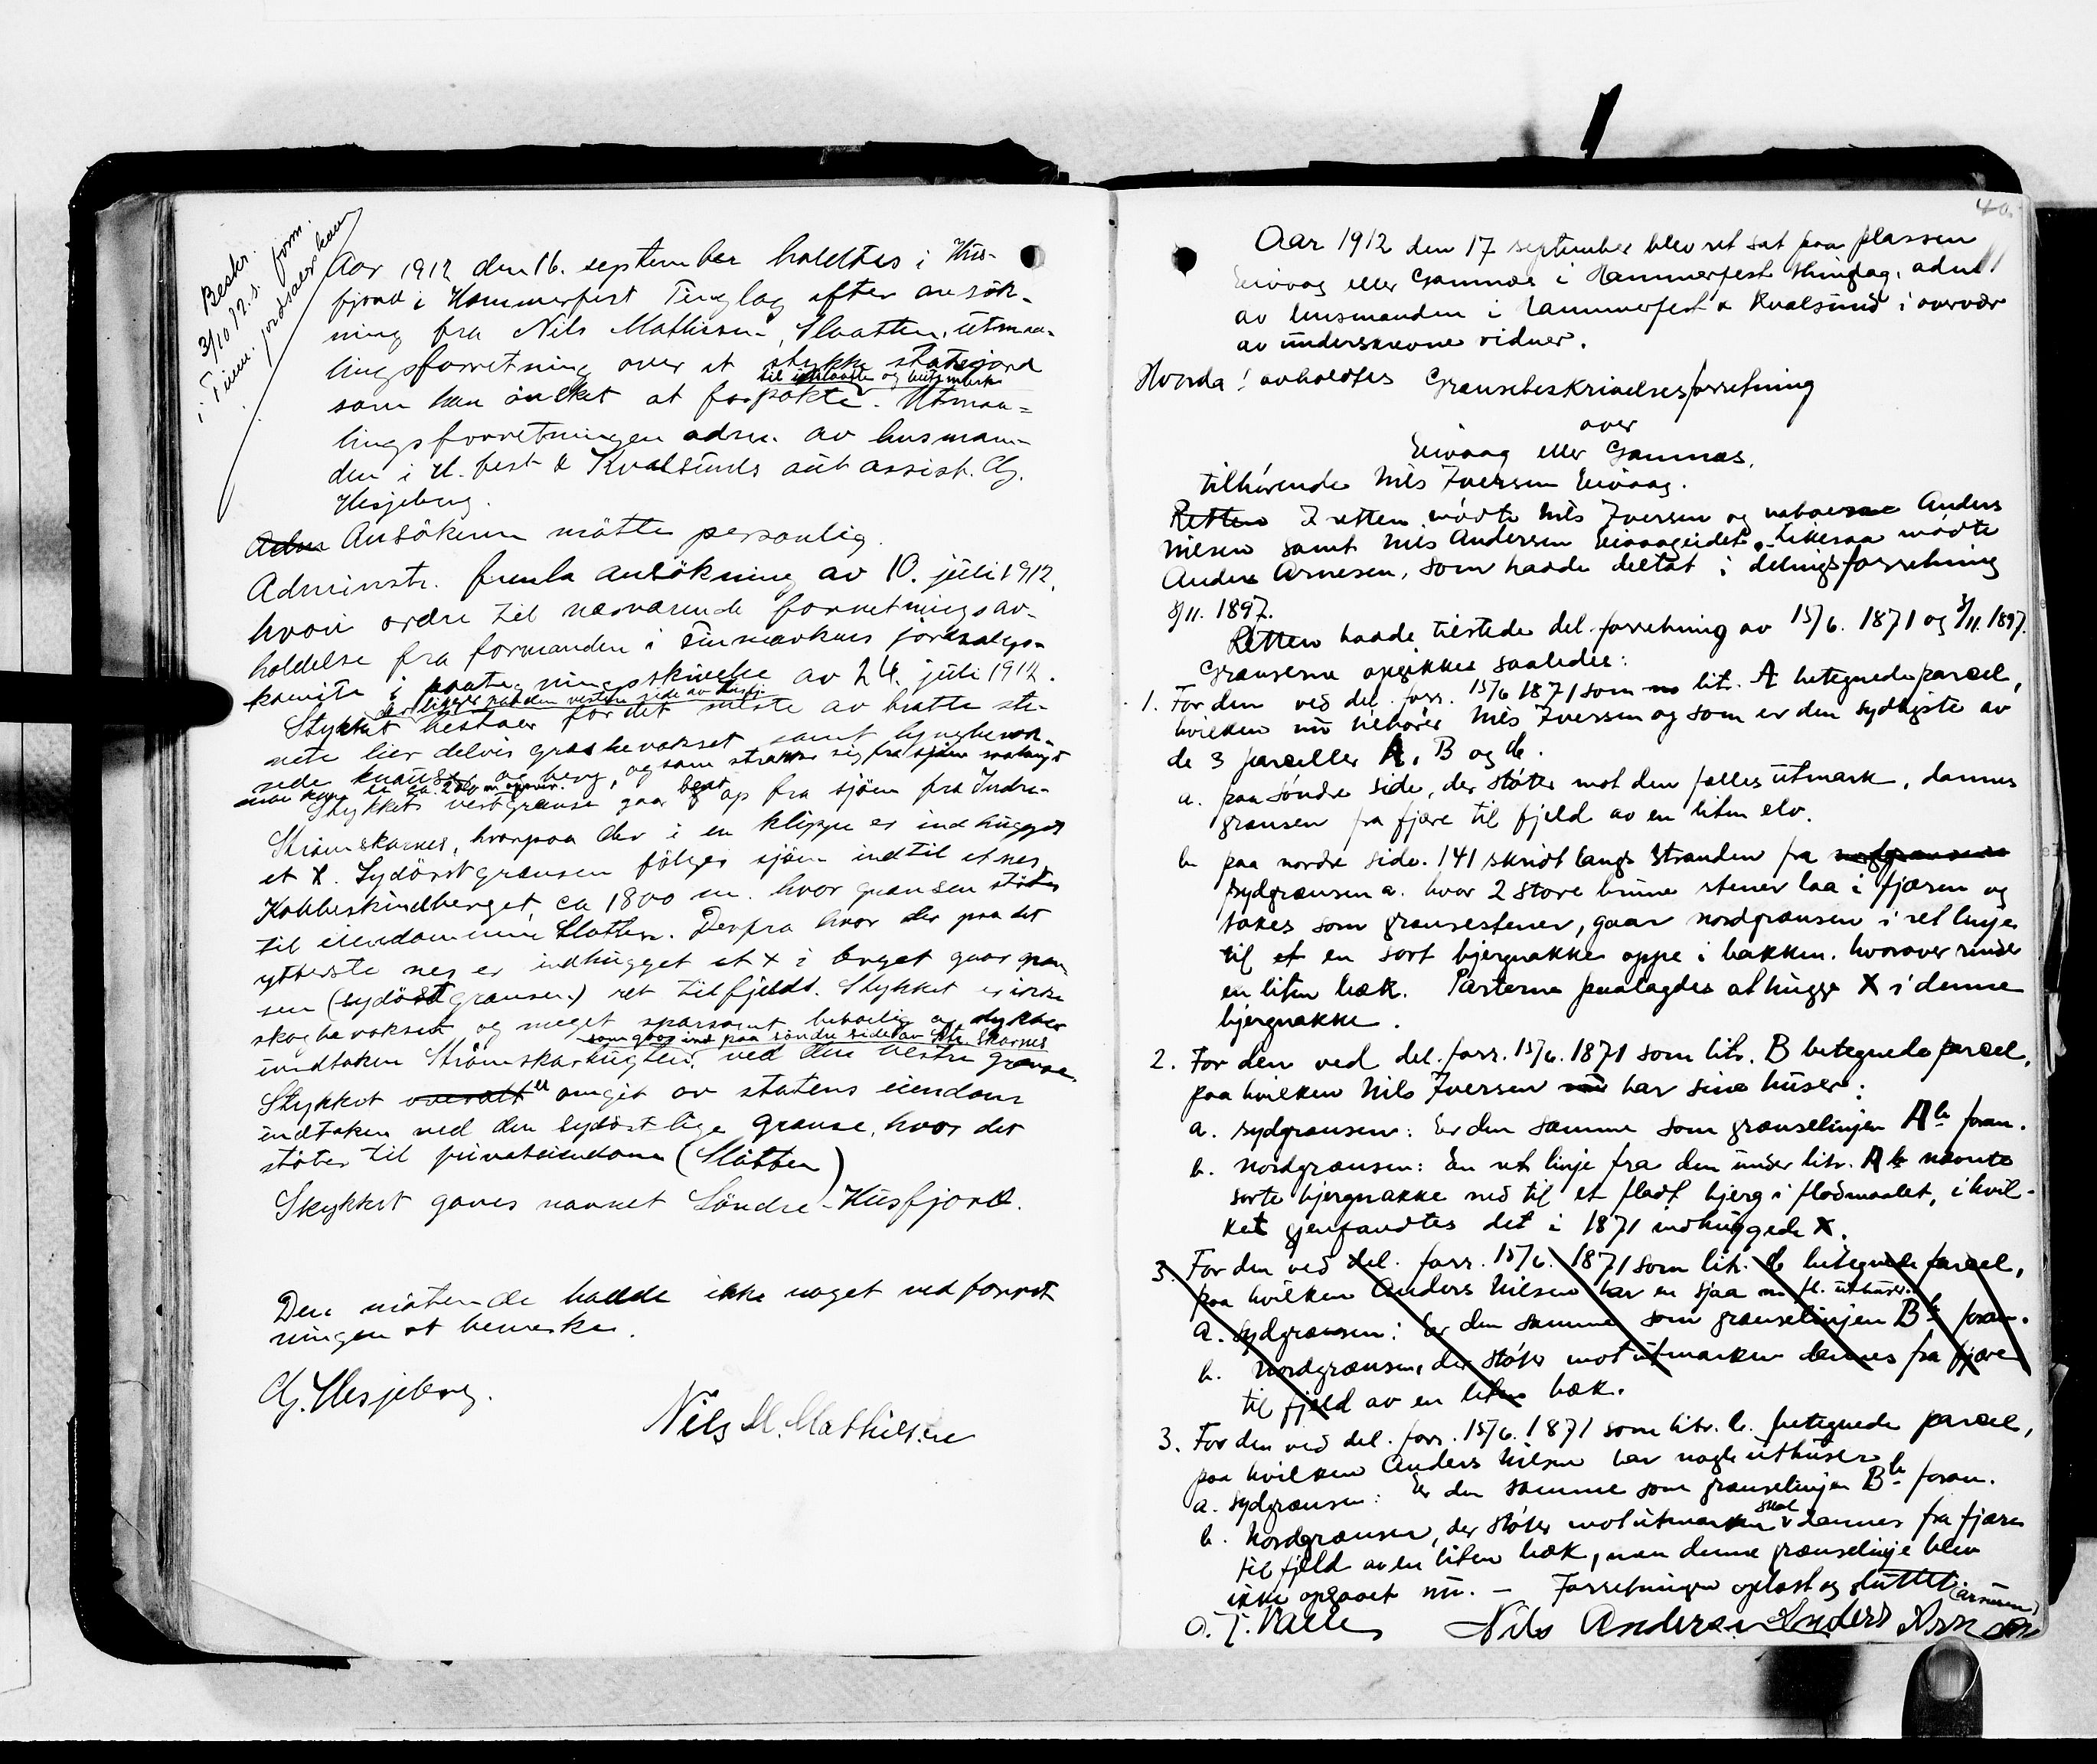 Beskr.
3/10 12. s. form.
i Finm. jordsalgskom
Aar 1912 den 16. september holdtes i Hus-
fjord i Hammerfest Tinglag efter ansök-
ning fra Nils Mathisen, Slaatten, utmaa-
lingsforretning over et stykke statsjord
til og
som han önsket at forpakte. Utmaa-
lingsforretningen adm. av lensman-
den i H.fest & Kvalsunds aut assist. Chr.
Hesjeberg.
Adm Ansökeren mötte personlig.
Adminstr. fremla ansökning av 10. juli 1912,
hvori ordre til nærværende forretnings av-
holdelse fra formanden i Finmarkens jordsalgs-
komite i paategningsskrivelse av 24. juli 1912.
der ligger ved den vestre side av Husfj.
Stykket bestaar for det meste av bratte ste-
nete lier delvis græsbevokset samt lyngbevok-
sede knauser og berg, og som strækker sig fra sjöen saalangt
man kan se ca. 200 m opover.
Stykkets vestgrænse gaar bent op fra sjöen fra Indre-
Strömskarnes, hvorpaa der i en klippe er indhugget
et X. Sydöstgrænsen fölger sjöen indtil et nes,
Kobbeskindberget, ca 1800 m. hvor grænsen stöter
til eiendommen Slotten. Derfra hvor der paa det
ytterste nes er indhugget et X i berget gaar græn-
sen (sydöstgrænsen) ret tilfjelds. Stykket er ikke
skogbevokset og meget sparsomt beboelig og dyrkbar
som gaar ind paa söndre side av Str. skarnes
undtaken Strömskarbugten, ved den vestre grænse.
Stykket overalt er omgit av statens eiendom
undtaken ved den sydöstlige grænse, hvor det
stöter til privateiendom (Slåtten)
Stykket gaves navnet Söndre-Husfjord.
Den mötende hadde ikke noget ved forret-
ningen at bemerke.
Chr. Hesjeberg.
Nils M. Mathisen
40.
Aar 1912 den 17 september blev ret sat paa plassen
Eivaag eller Gamnes i Hammerfest thinglag, adm
av lensmanden i Hammerfest & Kvalsund i overvær
av underskrevne vidner.
Hvorda! avholdtes Grænsebeskrivelsesforretning
over
Eivaag eller Gamnæs,
tilhörende Nils Iversen Eivaag.
Retten I retten mödte Nils Iversen og naboerne Anders
Nilsen samt Nils Andersen Eivaageidet. Likesaa mödte
Anders Arnesen, som hadde deltat i delingsforretning
8/11. 1897.
Retten hadde tilstede del. forretning av 15/6. 1871 og 8/11. 1897.
Grænserne opgikkes saaledes:
1. For den ved del. forr. 15/6 1871 som lit. A betegnede parcel,
hvilken nu tilhører Nils Iversen og som er den sydligste av
de 3 parceller A, B og C.
a. paa söndre side, der støter mot den fælles utmark, dannes
grænsen fra fjære til fjeld av en liten elv.
b. paa nordre side. 141 skridt langs stranden fra nordgrænsen
sydgrænsen a. hvor 2 store brune stener laa i fjæren og
takes som grænsestener, gaar nordgrænsen i ret linje
til et en sort bjergnakke oppe i bakken. hvorover rinder
en liten bæk. Parterne paalagdes at hugge X i denne
bjergnakke.
2. For den ved del. forr. 15/6. 1871 som litr. B betegnede parcel,
paa hvilken Nils Iversen nu har sine huser:
a. sydgrænsen: Er den samme som grænselinjen A b foran.
b. Nordgrænsen: En ret linje fra den under litr. A b nævnte
sorte bjergnakke ned til et fladt bjerg i flodmaalet, i hvil-
ket gjenfandtes det i 1871 indhuggede X.
3. For den ved del. forr. 15/6. 1871 som litr. C betegnede parcel,
paa hvilken Anders Nilsen har en sjaa m fl. uthuser.
a. Sydgrænsen: Er den samme som grænselinjen B b foran.
b. Nordgrænsen, der støter mot utmarken dannes fra fjære
til fjeld av en liten bæk.
3. For den ved del. forr. 15/6. 1871 som litr. C. betegnede parcel,
paa hvilken Anders Nilsen har nogle uthuser
a. Sydgrænsen: Er den samme som grænselinjen B b foran.
skal
b. Nordgrænsen, der støter mot utmarken dannes fra fjære
til fjeld av en liten bæk, men denne grænselinje blev
ikke opgaaet nu. - Forretningen oplæst og sluttet.
O. J. Valle Nils Andersen Anders Arnesen
(Arnesen)